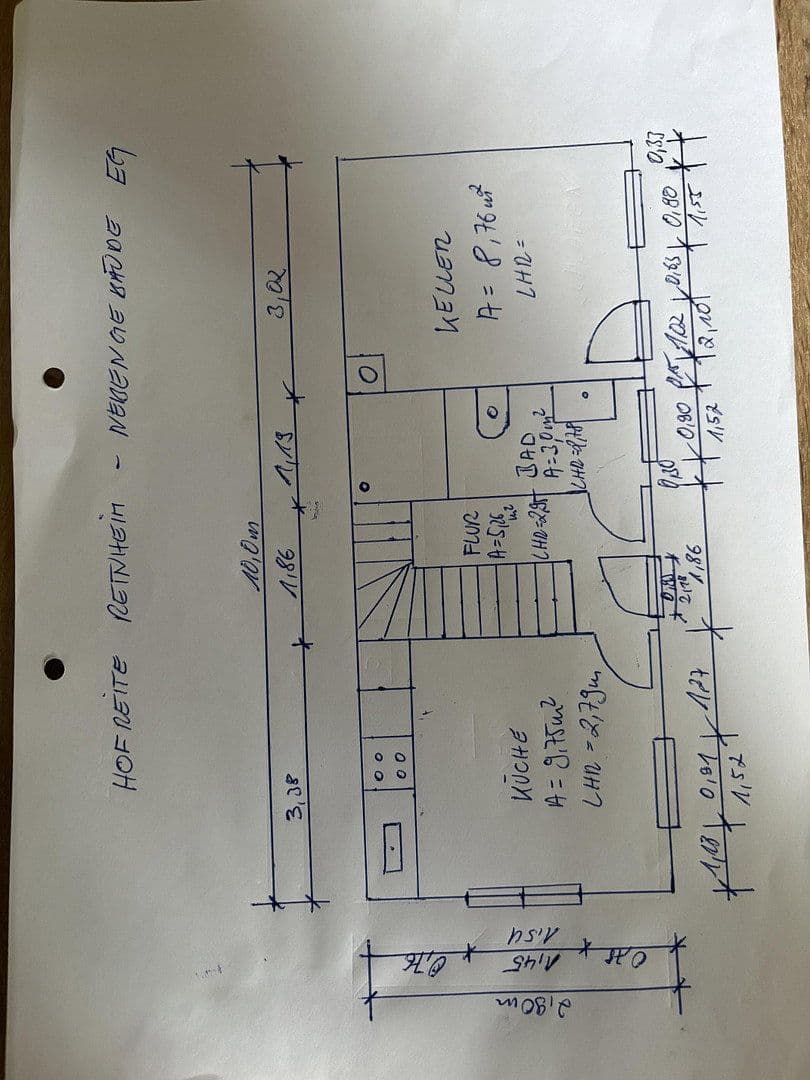 HOFREITE REINHEIM - NEBENGEBÄUDE EG
10,0m
3,38
1,86
1,19
3,02
KÜCHE
A = 9,75m²
LHR = 2,79m
FLUR
A=5,26
m²
LHR=2,95
BAD
A=3,0m²
KELLER
A = 8,76m²
LHR=
2,90m
0,76
1,45
1,54
0,78
1,13
0,91
1,52
1,27
1,86
2,18
0,30
0,90
1,52
0,15
1,02
2,10
0,63
0,80
1,55
0,33